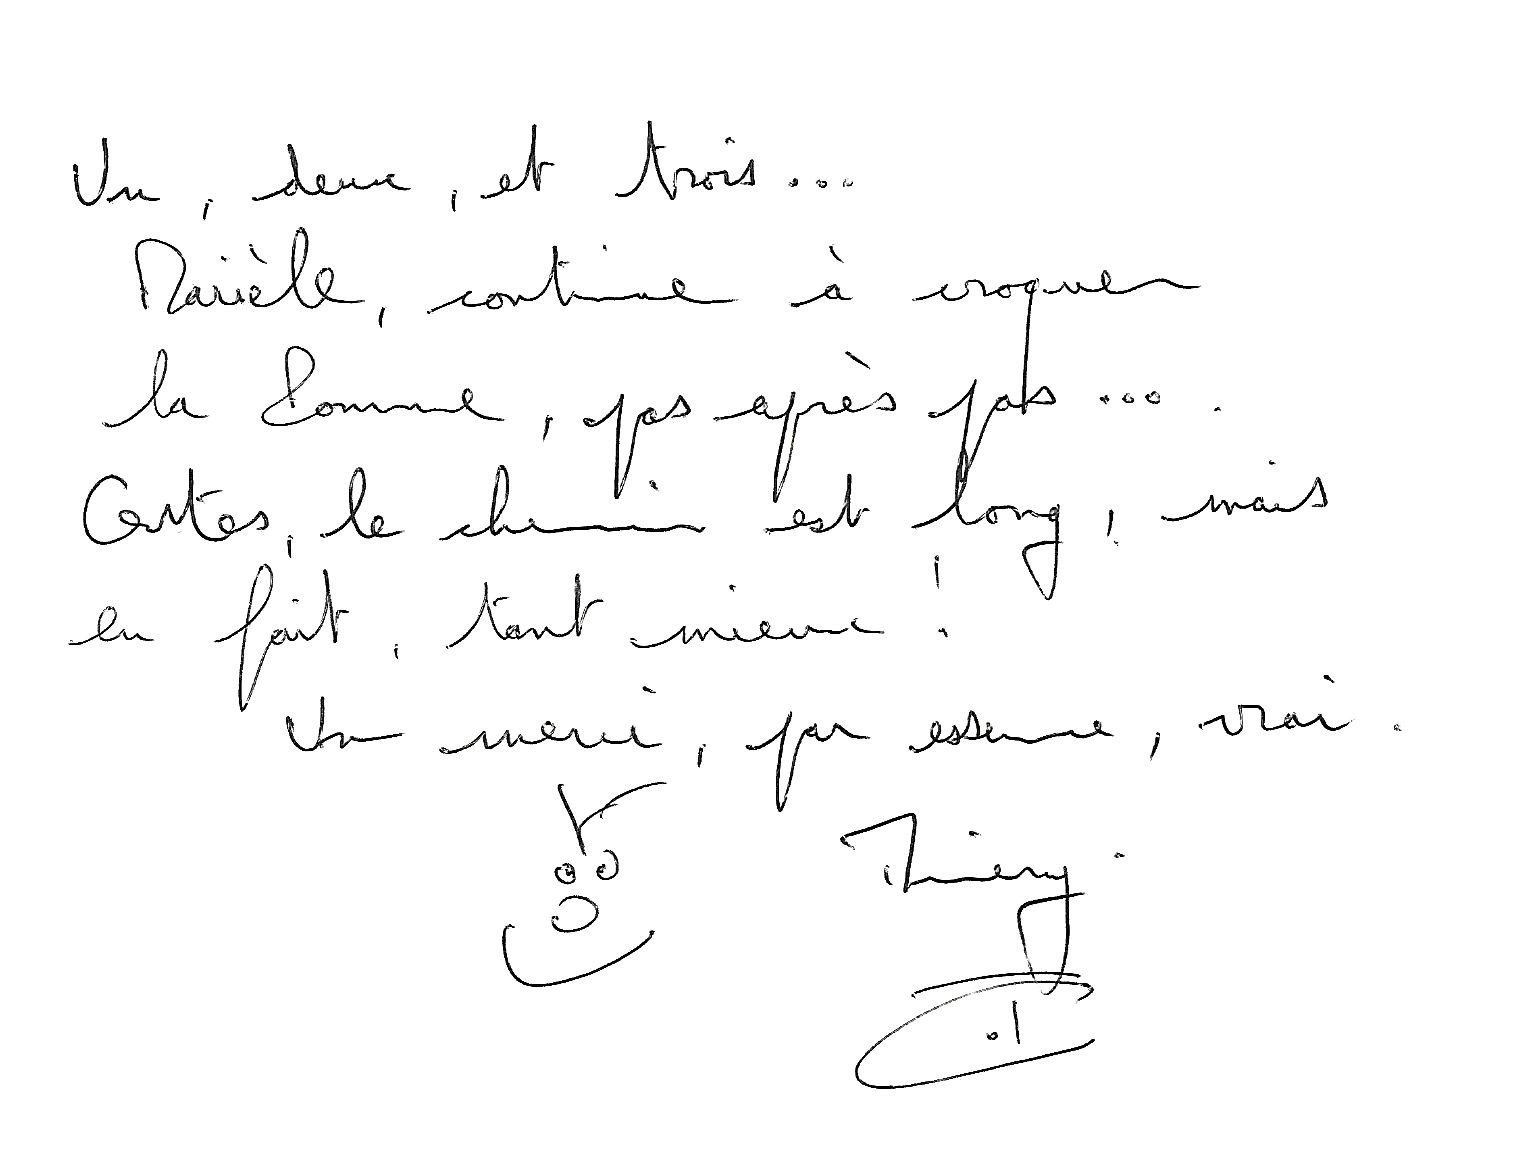 Un, deux, et trois...
Marièle, continue à croquer
la Pomme, pas après pas... .
Certes, le chemin est long, mais
en fait, tant mieux !
Un merci, par essence, vrai.
Thierry.